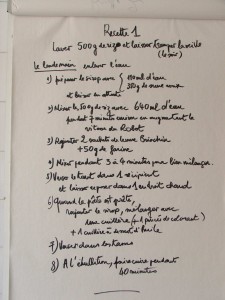 Recette 1
Laver 500g de riz et laisser tremper la veille
(le soir)
Le lendemain enlever l'eau
1) préparer le sirop avec 
et laisser en attente
2) Mixer le riz avec 640ml d'eau
pendant 7 minutes environ en augmentant la
vitesse du Robot
3) Rajouter 2 sachets de levure Briochin
+ 50g de farine
4) Mixer pendant 3 à 4 minutes pour bien mélanger
5) Verser le tout dans 1 récipient
et laisser reposer dans 1 endroit chaud
6) Quand la pâte est prête,
rajouter le sirop, mélanger avec
une cuillère (+ 1 pincée de colorant)
+ 1 cuillère à d'huile
7) Verser dans les
8) A l'ébullition, faire cuire pendant
40 minutes